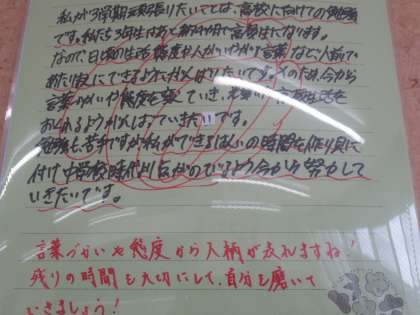 私が3学期頑張りたいことは、高校に向けての勉強
です。私たち3年生はあと約4か月で高校生になります。
なので、日頃の生活態度や人がいやがる言葉など、人前で
あたりまえにできるようにがんばりたいです。そのため、今から
言葉づかいや態度を整えていき、楽しい高校生活を
おくれるようがんばっていきたいです。
勉強も苦手ですが私ができるはんいの時間を作り身に
付け中学校時代より広がのでるよう今から努力して
いきたいです。
言葉づかいや態度から人柄が表れますね!
残りの時間も大切にして、自分を磨いて
いきましょう!